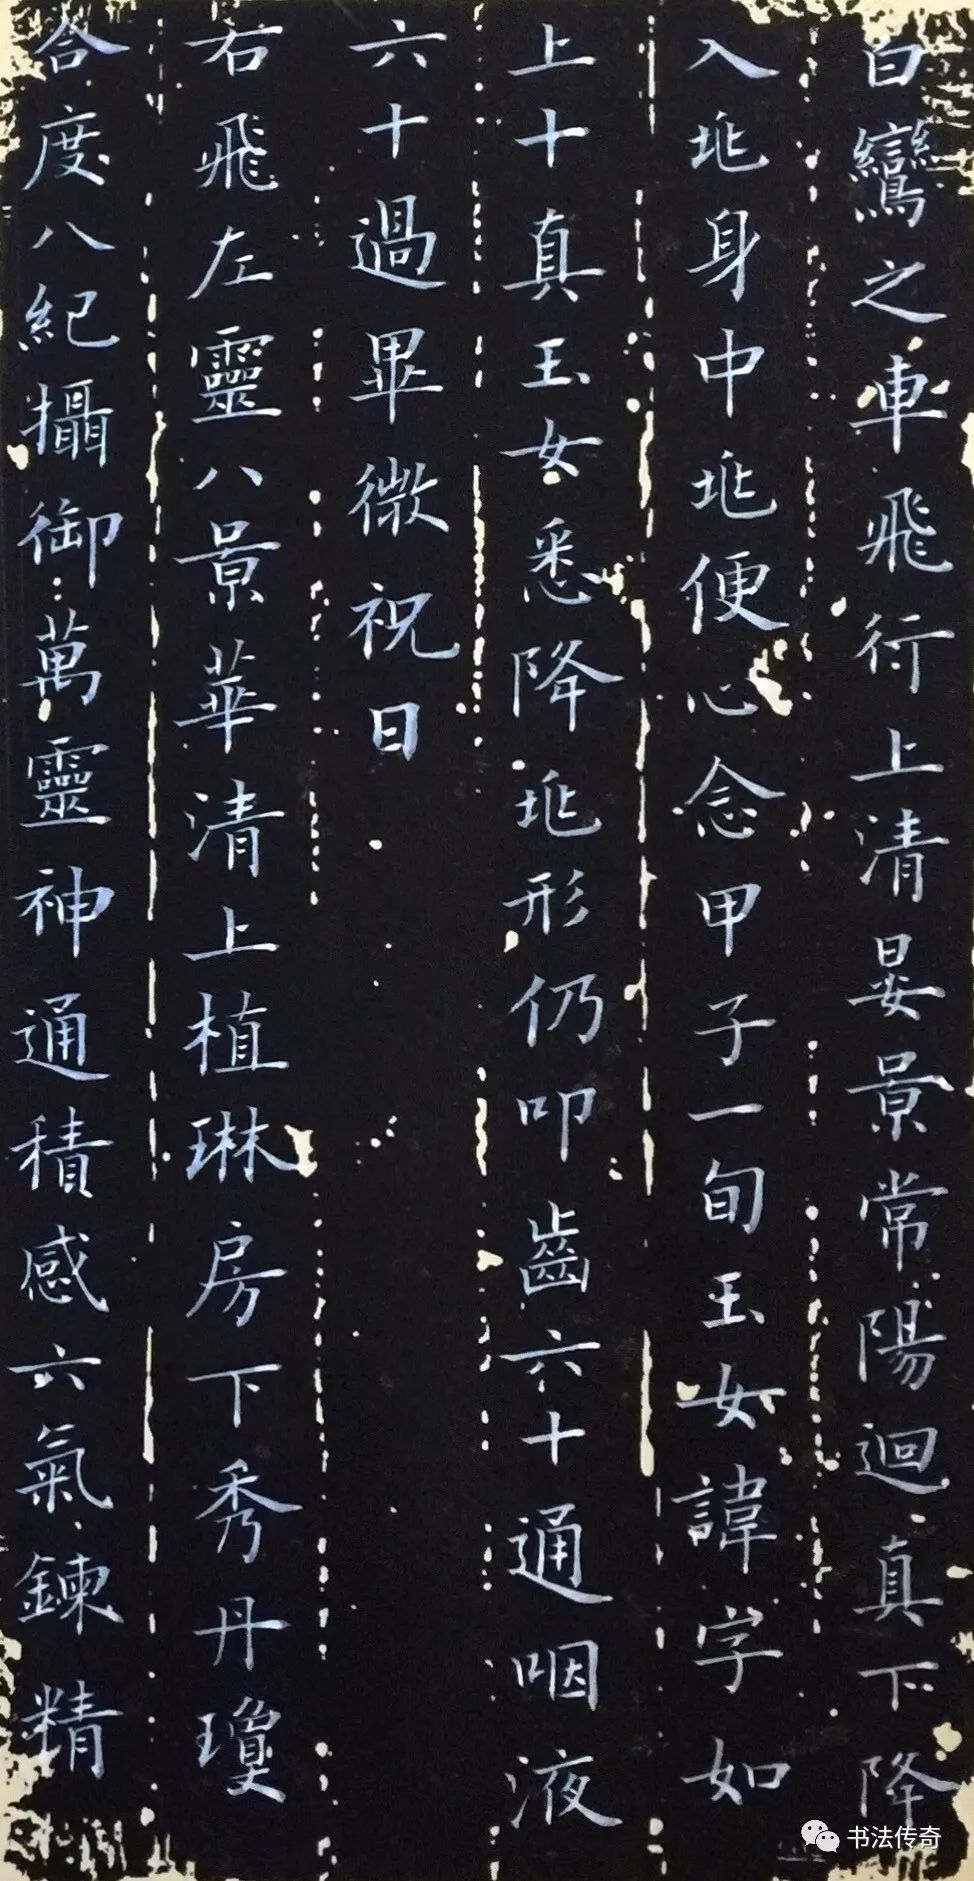 白鸞之車飛行上清晏景常陽迴真下降
入兆身中兆便心念甲子一旬玉女諱字如
上十真玉女悉降兆形仍叩齒六十通咽液
六十過畢微祝曰
右飛左靈八景華清上植琳房下秀丹瓊
合度八紀攝御萬靈神通積感六氣鍊精
书法传奇